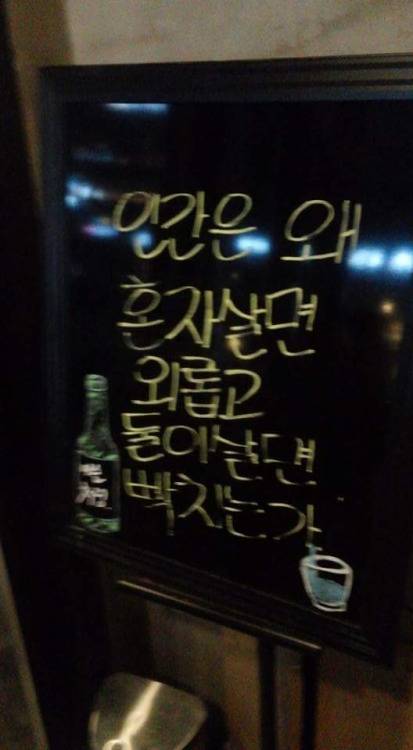 인간은 왜
혼자살면
외롭고
둘이살면
빡치는가
처음